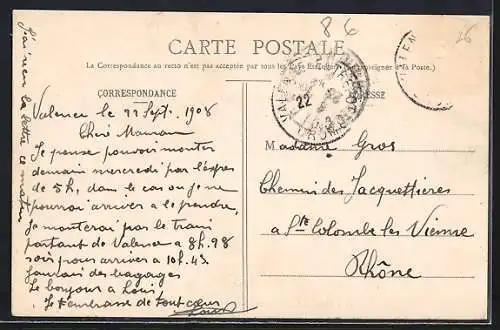 86
26
CARTE POSTALE
La Correspondance au recto n'est pas acceptée par tous les Pays Etrangers. (Se renseigner à la Poste.)
CORRESPONDANCE
ADRESSE
22
DROME
J'ai reçu ta lettre ce matin
Valence le 22 Sept. 1908
Chère Maman
Je pense pouvoir monter
demain mercredi par l'expres
de 5h, dans le cas ou je ne
pourrai arriver a le prendre,
je monterai par le train
partant de Valence a 8h.28
soir pour arriver a 10h.43.
J'aurai des bagages
Le bonjour a Loui
Je t'embrasse de tout cœur
Louis
Madame Gros
Chemin des Jacquettières
a Ste Colombe les Vienne
Rhône